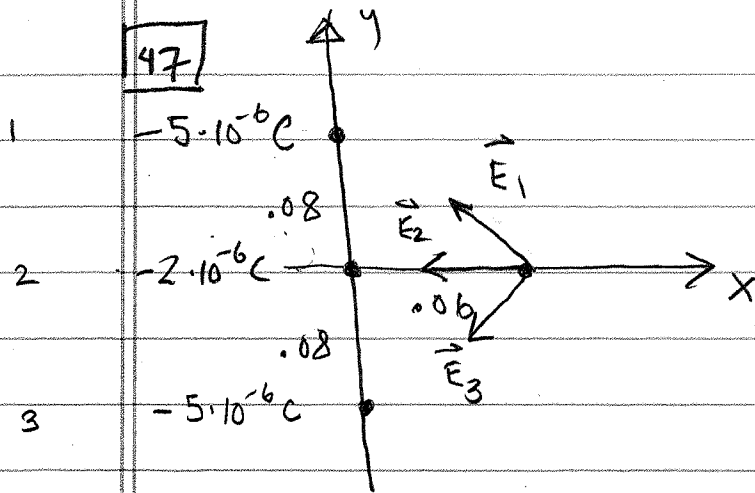 y
47
1 -5·10⁻⁶ C
E₁
.08
E₂
2 -2·10⁻⁶ C
x
.06
.08
E₃
3 -5·10⁻⁶ C